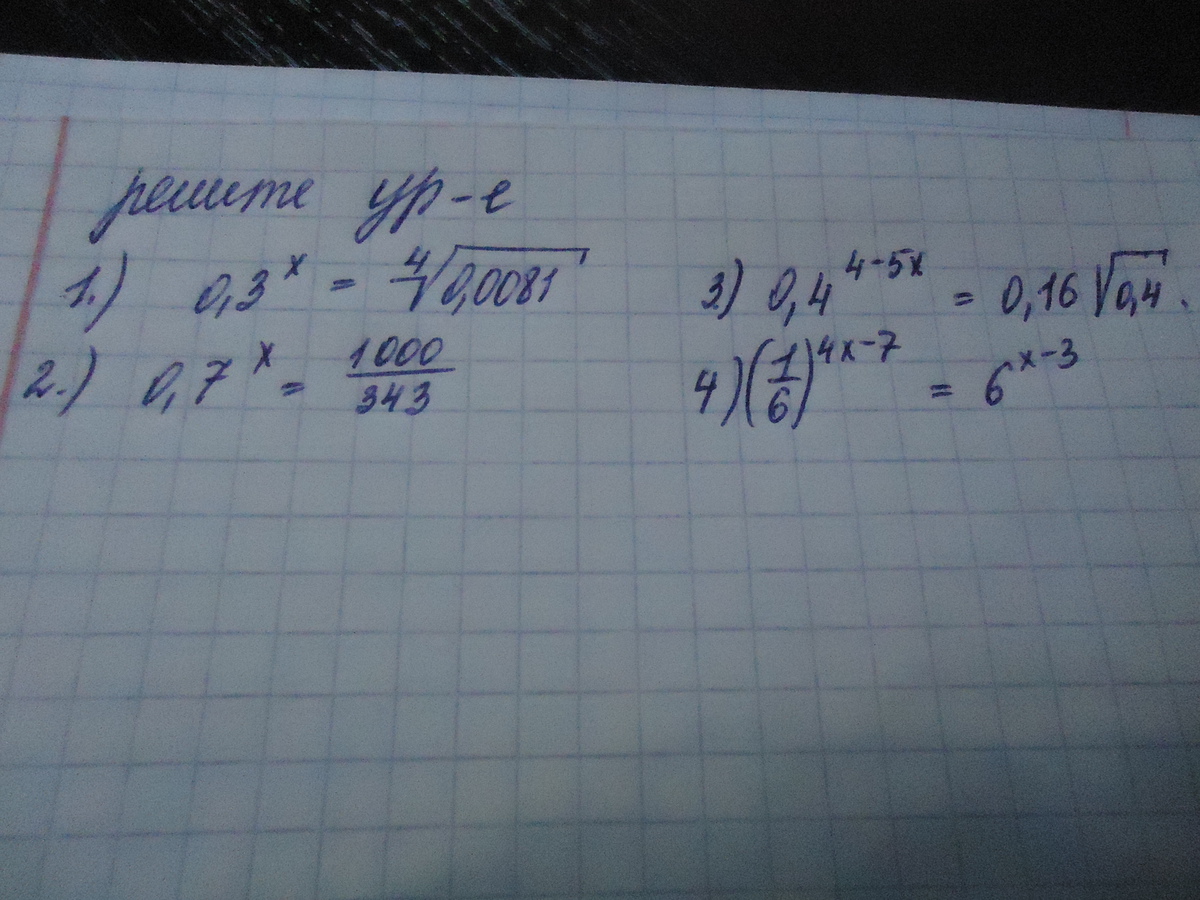 решите ур-е
1.) 0,3^x = ⁴√0,0081
2.) 0,7^x = 1000/343
3) 0,4^(4-5x) = 0,16 √0,4.
4) (1/6)^(4x-7) = 6^(x-3)